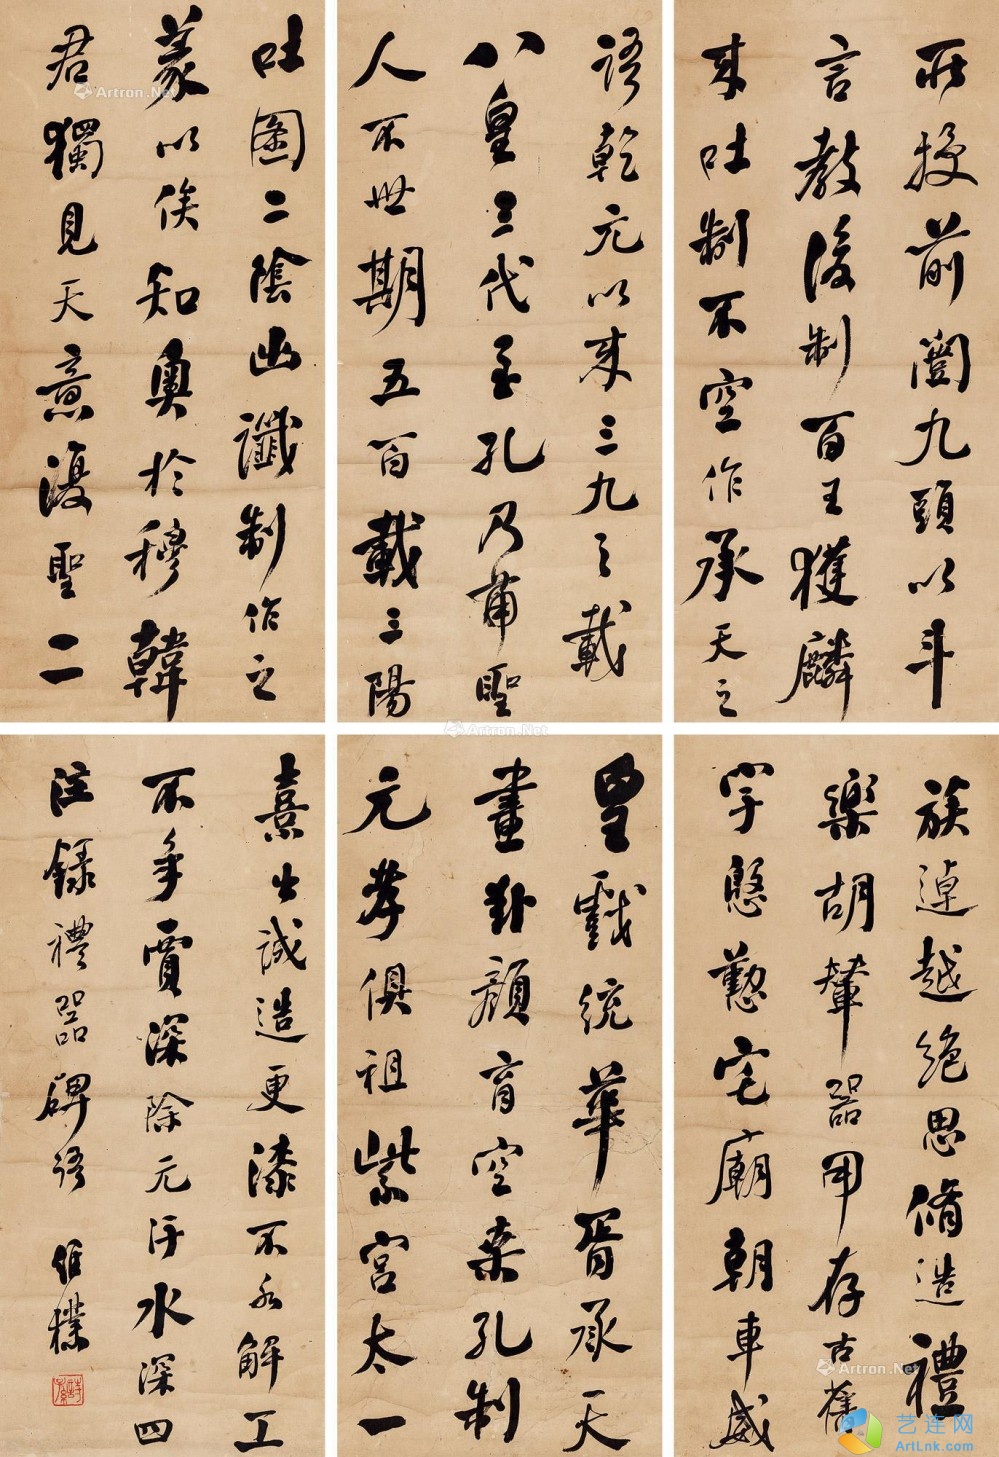 所授前闓九頭以斗
言教後制百王獲麟
来吐制不空作承天之
語乾元以来三九之載
八皇三代至孔乃備聖
人不世期五百載三陽
吐圖二陰出讖制作之
義以俟知奥於穆韓
君獨見天意復聖二
族逴越絶思脩造禮
樂胡輦器用存古舊
宇慇懃宅廟朝車威
皇戲統華胥承天
畫卦顔育空桑孔制
元孝俱祖紫宮太一
熹出誠造更漆不水解工
不争賈深除元汙水深四
注録禮器碑語 維樸
詩孫
Artron.Net
Artron.Net
Artron.Net
Artron.Net
艺连网
ArtLnk.com